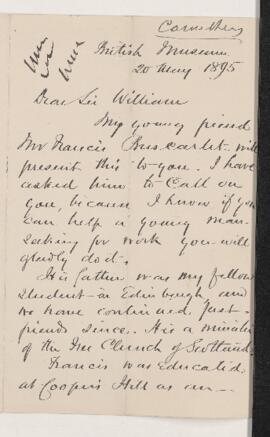 Carruthers
British Museum
20 May 1895
Dear Sir William
My young friend
Mr Francis Buscarlet will
present this to you. I have
asked him to call on
you, because I know if you
can help a young man
seeking for work you will
gladly do it.
His father was my fellow
student in Edinburgh, and
we have continued fast
friends since. He is a minister
of the Free Church of Scotland
Francis was educated
at Coopers Hill as an